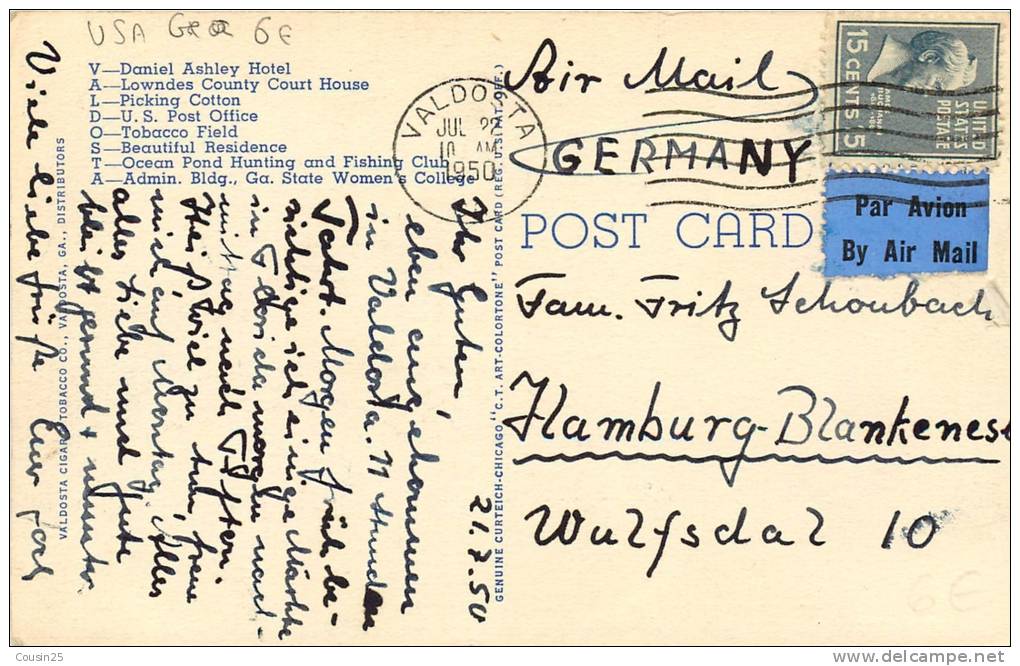 USA 6 €
V—Daniel Ashley Hotel
A—Lowndes County Court House
L—Picking Cotton
D—U. S. Post Office
O—Tobacco Field
S—Beautiful Residence
T—Ocean Pond Hunting and Fishing Club
A—Admin. Bldg., Ga. State Women's College
VALDOSTA CIGAR & TOBACCO CO., VALDOSTA, GA., DISTRIBUTORS
GENUINE CURTEICH-CHICAGO "C. T. ART-COLORTONE" POST CARD (REG. U. S. PAT. OFF.)
VALDOSTA
JUL 22
10 AM
1950
15 CENTS 15
UNITED
STATES
POSTAGE
Par Avion
By Air Mail
Air Mail
GERMANY
POST CARD
Fam. Fritz Schoubach
Hamburg-Blankenese
Wulfsdal 10
21.7.50
Ihr Guten,
eben angekommen
in Valdosta. 11 Stunden
Fahrt. Morgen früh be-
sichtige ich einige Märkte
in Florida morgen nach-
mittag nach Tifton.
Heißt viel zu tun, freue
mich auf Montag. Alles
alles Liebe und Gute
bleibt gesund & munter
Viele liebe Grüße Euer
6 €
Cousin25